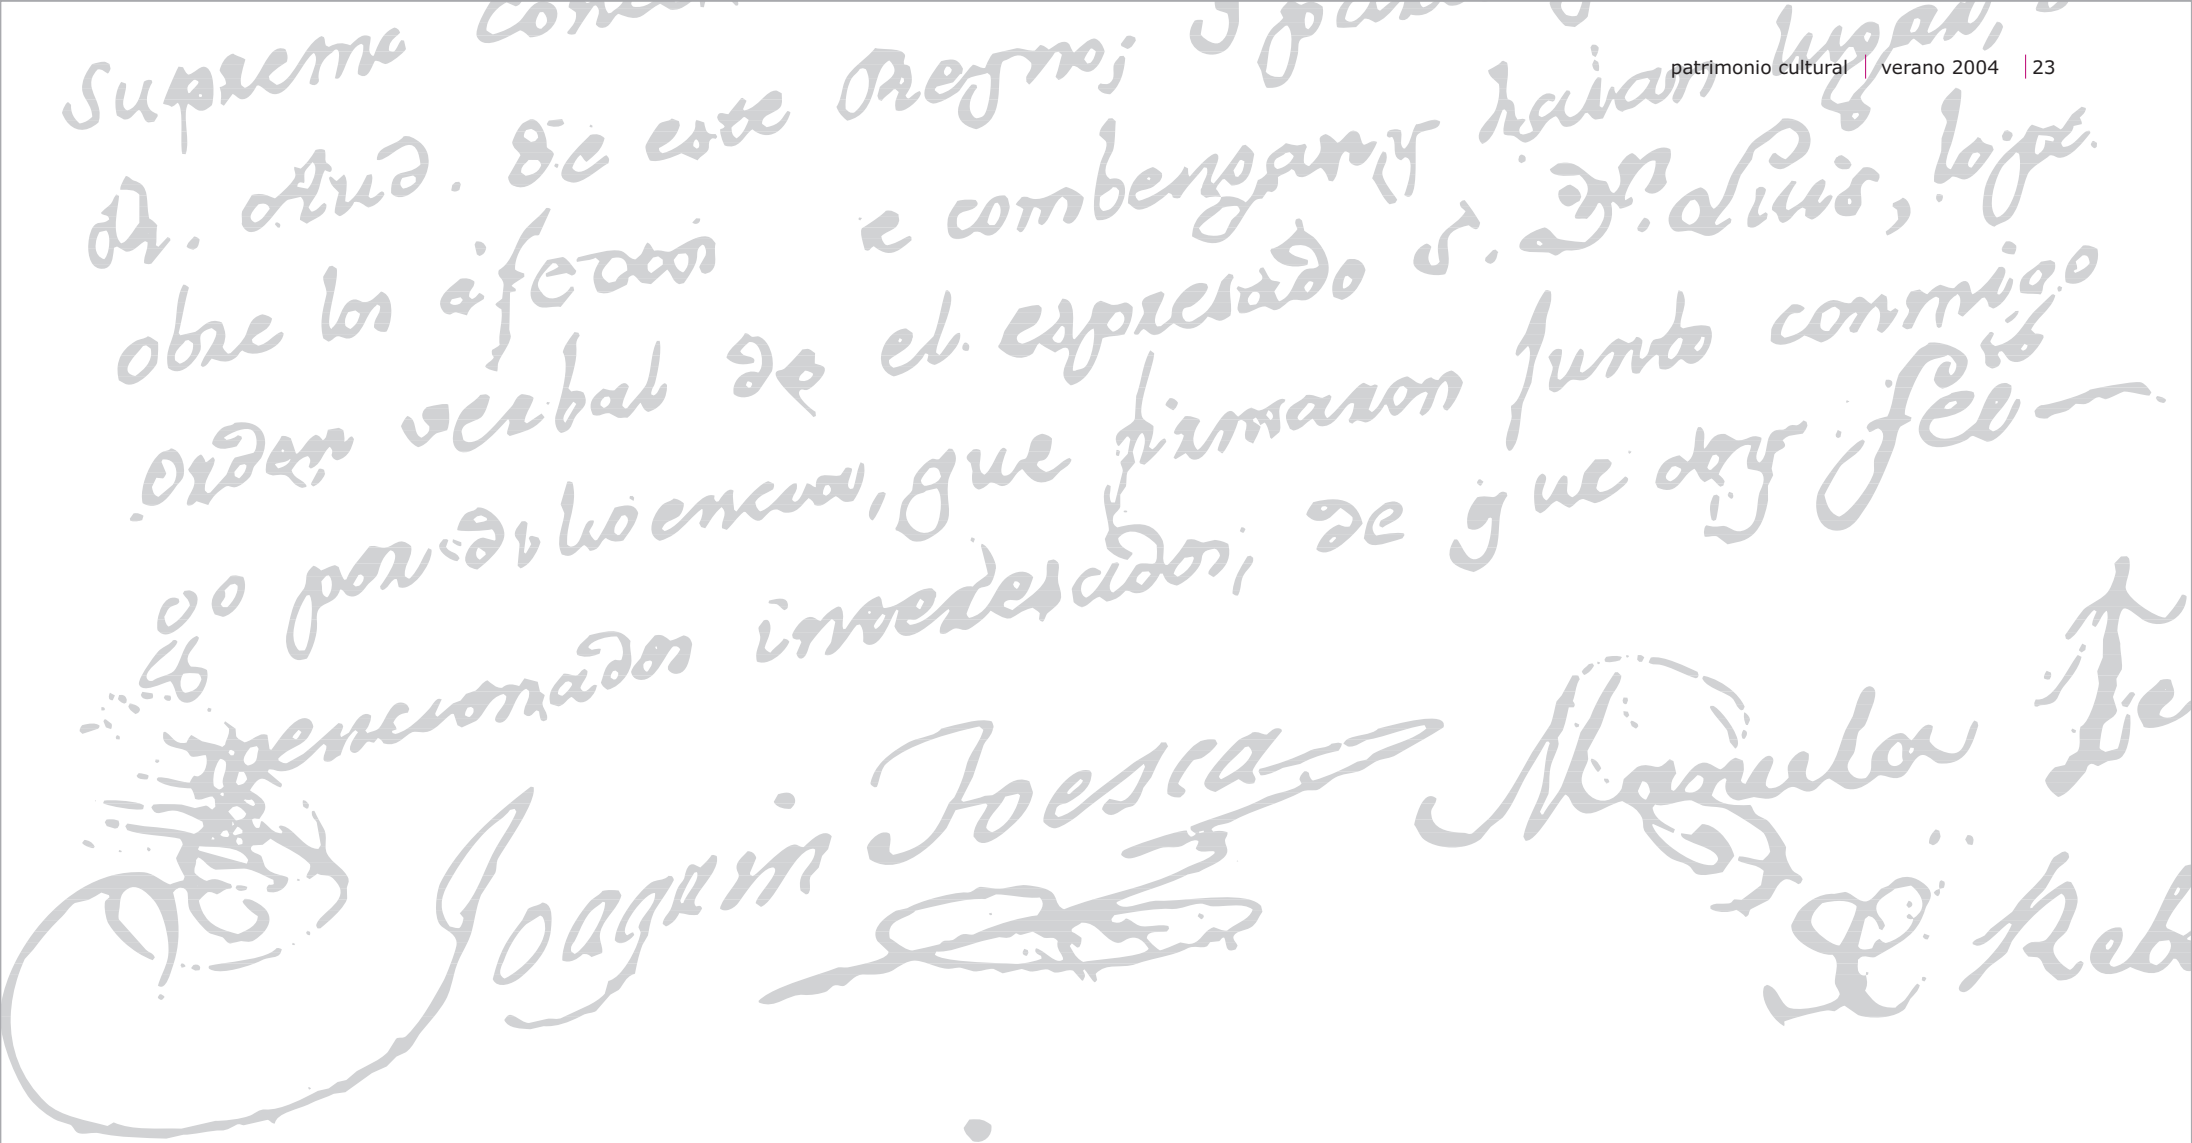 patrimonio cultural verano 2004 23
Suprema
Rl. Aud. de este Regno;
obre los efectos e combengan, y haian lugar,
orden verbal de el espresado S. Dn. Luis,
por diligencia, que firmaron junto conmigo
mencionados interesados; de que doy fee
Joaquin Toesca
Manuela